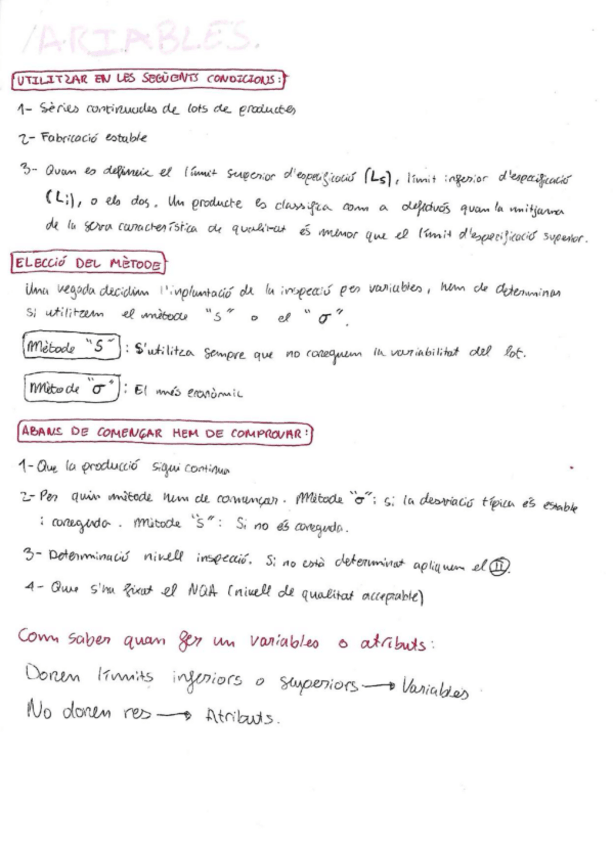 VARIABLES.
UTILITZAR EN LES SEGÜENTS CONDICIONS:
1- Sèries continuades de lots de productes
2- Fabricació estable
3- Quan es defineix el límit superior d'especificació (Ls), límit inferior d'especificació
(Li), o els dos. Un producte es classifica com a defectuós quan la mitjana
de la seva característica de qualitat és menor que el límit d'especificació superior.
ELECCIÓ DEL MÈTODE
Una vegada decidim l'implantació de la inspecció per variables, hem de determinar
si utilitzem el mètode "S" o el "σ".
Mètode "S" : S'utilitza sempre que no coneguem la variabilitat del lot.
Mètode "σ" : El més econòmic
ABANS DE COMENÇAR HEM DE COMPROVAR:
1- Que la producció sigui continua
2- Per quin mètode hem de començar. Mètode "σ": si la desviació típica és estable
i coneguda. Mètode "S": Si no és coneguda.
3- Determinació nivell inspecció. Si no està determinat apliquem el II.
4- Que s'ha fixat el NQA (nivell de qualitat acceptable)
Com saber quan fer un variables o atributs:
Donen límits inferiors o superiors → Variables
No donen res → Atributs.